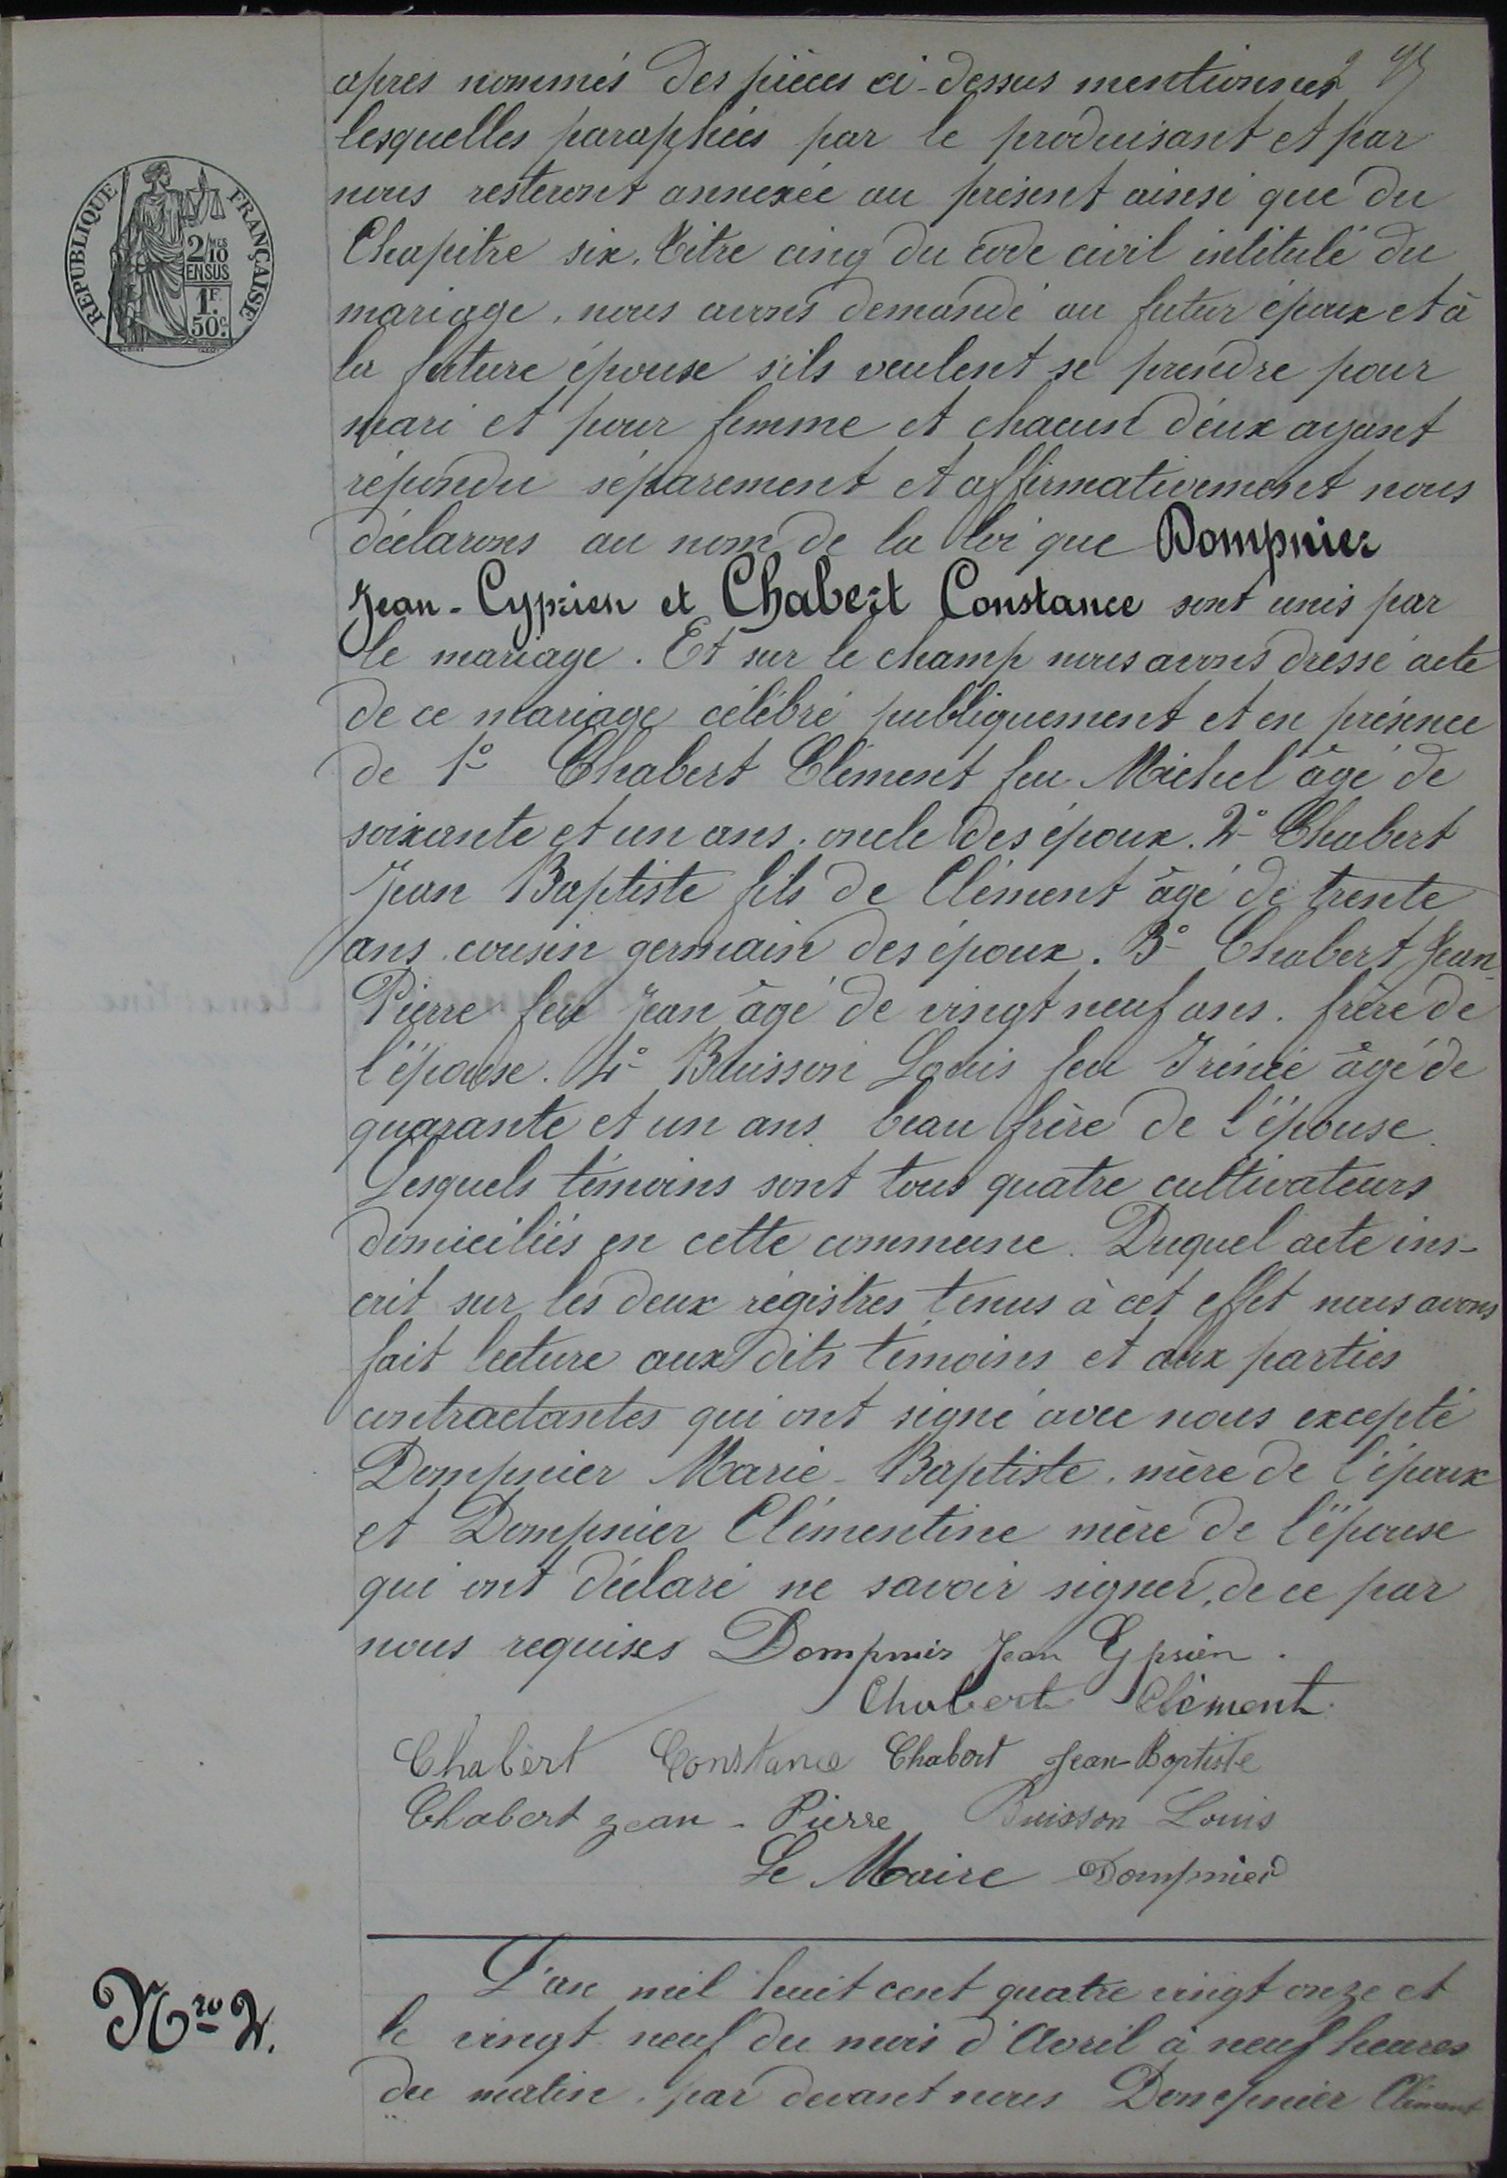 après nommés des pièces ci-dessus mentionnés
lesquelles paraphées par le produisant et par
nous resteront annexée au présent ainsi que du
Chapitre six. Titre cinq du code civil intitulé du
mariage, nous avons demandé au futur époux et à
la future épouse s'ils veulent se prendre pour
mari et pour femme et chacun d'eux ayant
répondu séparement et affirmativement nous
déclarons au nom de la loi que Dompnier
Jean-Cyprien et Chabert Constance sont unis par
le mariage. Et sur le champ nous avons dressé acte
de ce mariage célébré publiquement et en présence
de 1° Chabert Clément feu Michel âgé de
soixante et un ans. oncle des époux. 2° Chabert
Jean Baptiste fils de Clément âgé de trente
ans. cousin germain des époux. 3° Chabert Jean-
Pierre feu Jean âgé de vingt neuf ans. frère de
l'épouse. 4° Buisson Louis feu Irénée âgé de
quarante et un ans beau frère de l'épouse.
Lesquels témoins sont tous quatre cultivateurs
domiciliés en cette commune. Duquel acte ins-
crit sur les deux régistres tenus à cet effet nous avons
fait lecture aux dits témoins et aux parties
contractantes qui ont signé avec nous excepté
Dompnier Marie-Baptiste. mère de l'époux
et Dompnier Clémentine mère de l'épouse
qui ont déclaré ne savoir signer, de ce par
nous requises Dompnier Jean Cyprien.
Chabert Clément
Chabert Constance Chabert Jean-Baptiste
Chabert Jean-Pierre Buisson Louis
Le Maire Dompnier
Nro 2.
L'an mil huit cent quatre vingt onze et
le vingt neuf du mois d'Avril à neuf heures
du matin. par devant nous Dompnier Clément
RÉPUBLIQUE FRANÇAISE
2/10MES
EN SUS
1F.
50c.